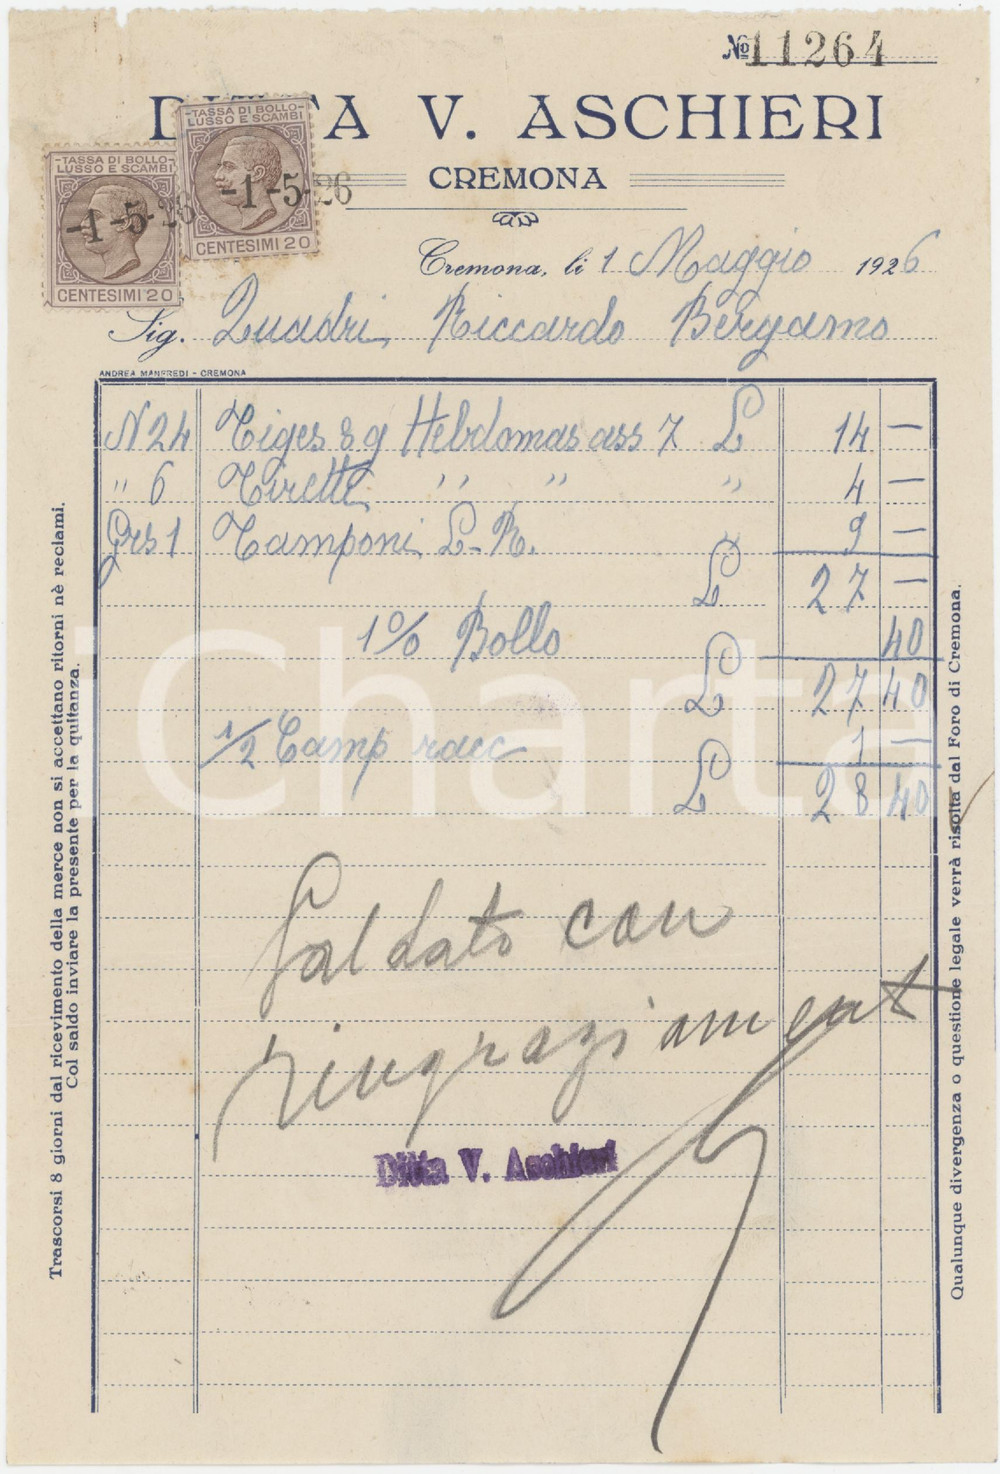 No 11264
DITTA V. ASCHIERI
CREMONA
-TASSA DI BOLLO-
LUSSO E SCAMBI
-1-5-26
CENTESIMI 20
-TASSA DI BOLLO-
LUSSO E SCAMBI
-1-5-26
CENTESIMI 20
Cremona, li 1 Maggio 1926
Sig. Quadri Riccardo Bergamo
ANDREA MANFREDI - CREMONA
N 24 Tiges 8 g Hebdomas ass 7 L 14 —
" 6 Tirette " " " 4 —
Grs 1 Tamponi L-R. " 9 —
L 27 —
1% Bollo 40
L 27 40
1/2 Camp racc 1 —
L 28 40
Saldato con
ringraziament
Ditta V. Aschieri
Trascorsi 8 giorni dal ricevimento della merce non si accettano ritorni nè reclami.
Col saldo inviare la presente per la quitanza.
Qualunque divergenza o questione legale verrà risolta dal Foro di Cremona.
iCharta